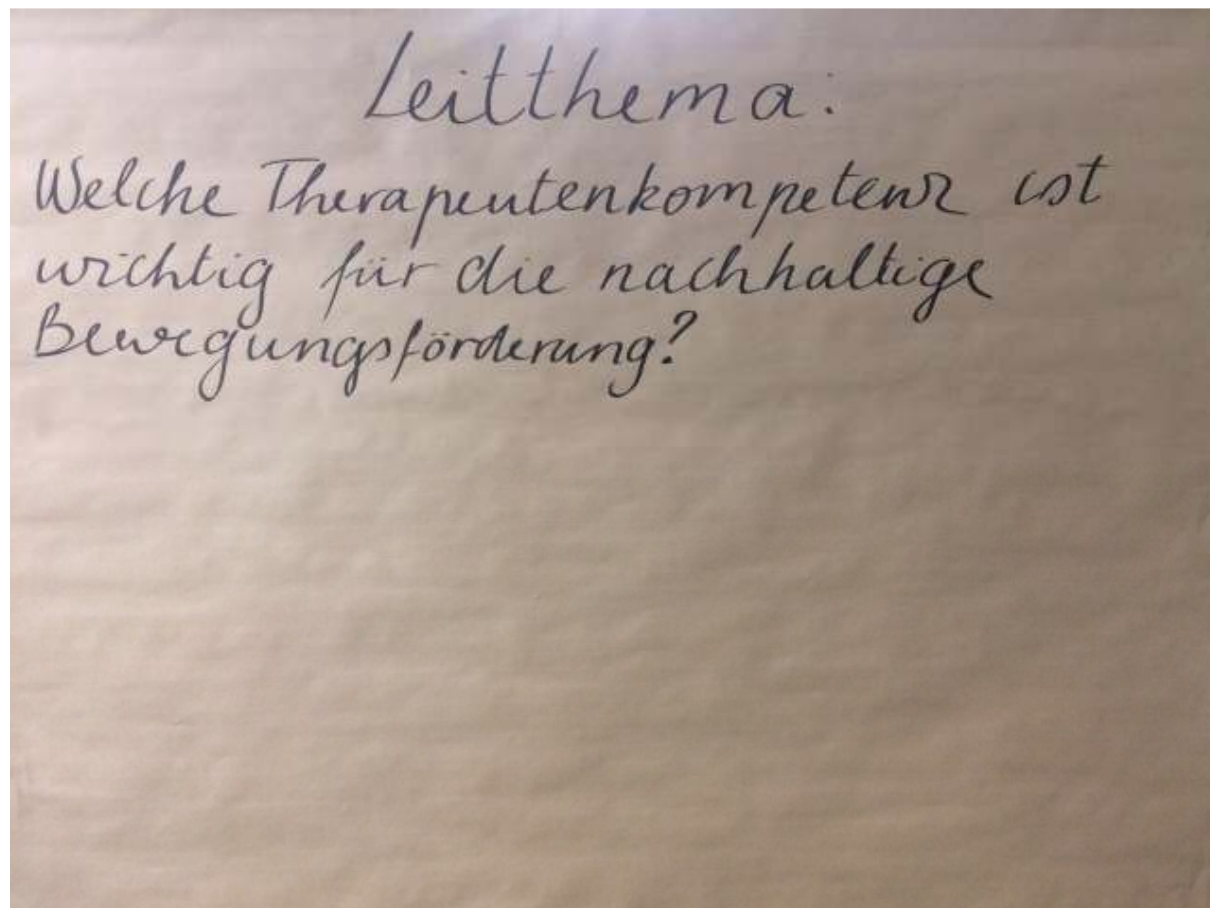 Leitthema:
Welche Therapeutenkompetenz ist
wichtig für die nachhaltige
Bewegungsförderung?